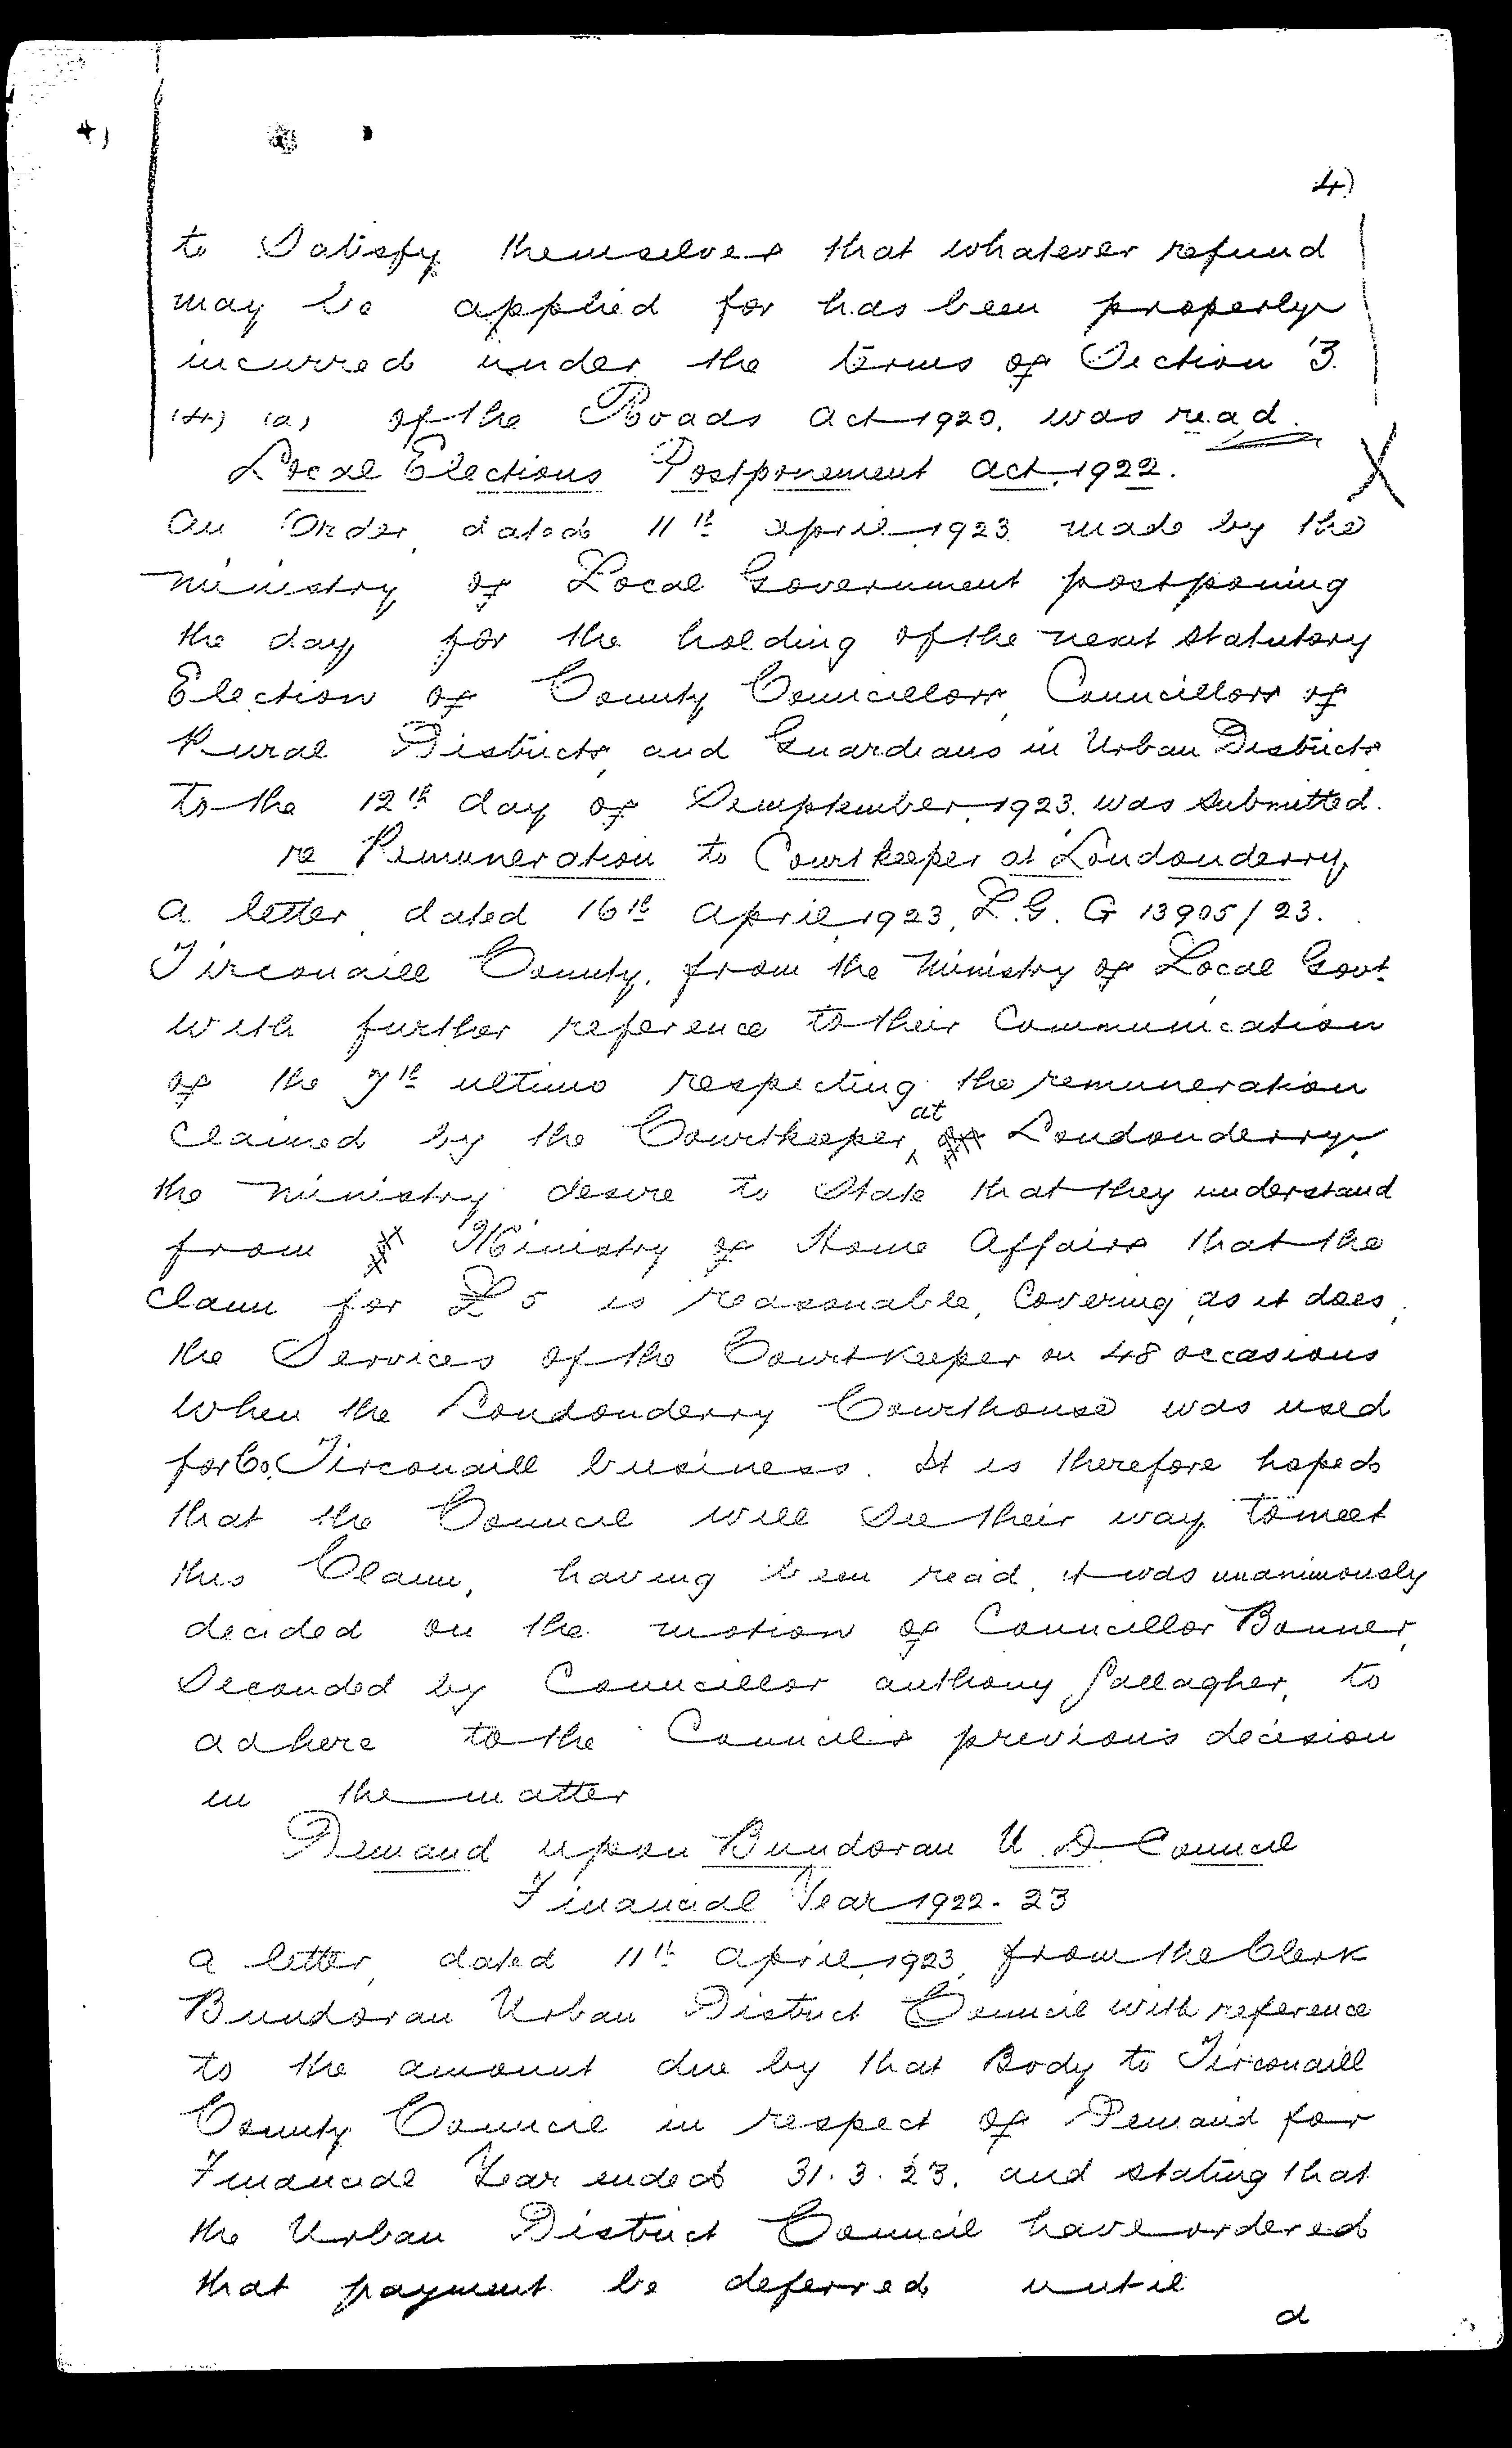 4)
4)
to Satisfy themselves that whatever refund
may be applied for has been properly
incurred under the terms of Section 3.
(4) (a) of the Roads Act 1920, was read.
Local Elections Postponement Act, 1922.
An Order, dated 11th April, 1923 made by the
Ministry of Local Government postponing
the day for the holding of the next statutory
Election of County Councillors, Councillors of
Rural Districts, and Guardians in Urban Districts
to the 12th day of Semptember, 1923, was submitted.
re Remuneration to Courtkeeper at Londonderry,
A letter, dated 16th April, 1923, L.G. G 13905/23.
Tirconaill County, from the Ministry of Local Govt.
with further reference to their Communication
of the 7th ultimo respecting the remuneration
claimed by the Courtkeeper, at Londonderry,
the Ministry desire to State that they understand
from Ministry of Home Affairs that the
claim for £5 is reasonable, Covering, as it does,
the Services of the Courtkeeper on 48 occasions
when the Londonderry Courthouse was used
for Co. Tirconaill business. It is therefore hoped
that the Council will see their way to meet
this Claim, having been read, it was unanimously
decided on the motion of Councillor Bonner,
Seconded by Councillor Anthony Gallagher, to
adhere to the Council's previous decision
in the matter
Demand upon Bundoran U. D Council
Financial Year 1922-23
A letter, dated 11th April, 1923, from the Clerk
Bundoran Urban District Council with reference
to the amount due by that Body to Tirconaill
County Council in respect of Demand for
Financial Year ended 31.3.23. and stating that
the Urban District Council have ordered
that payment be deferred until
a